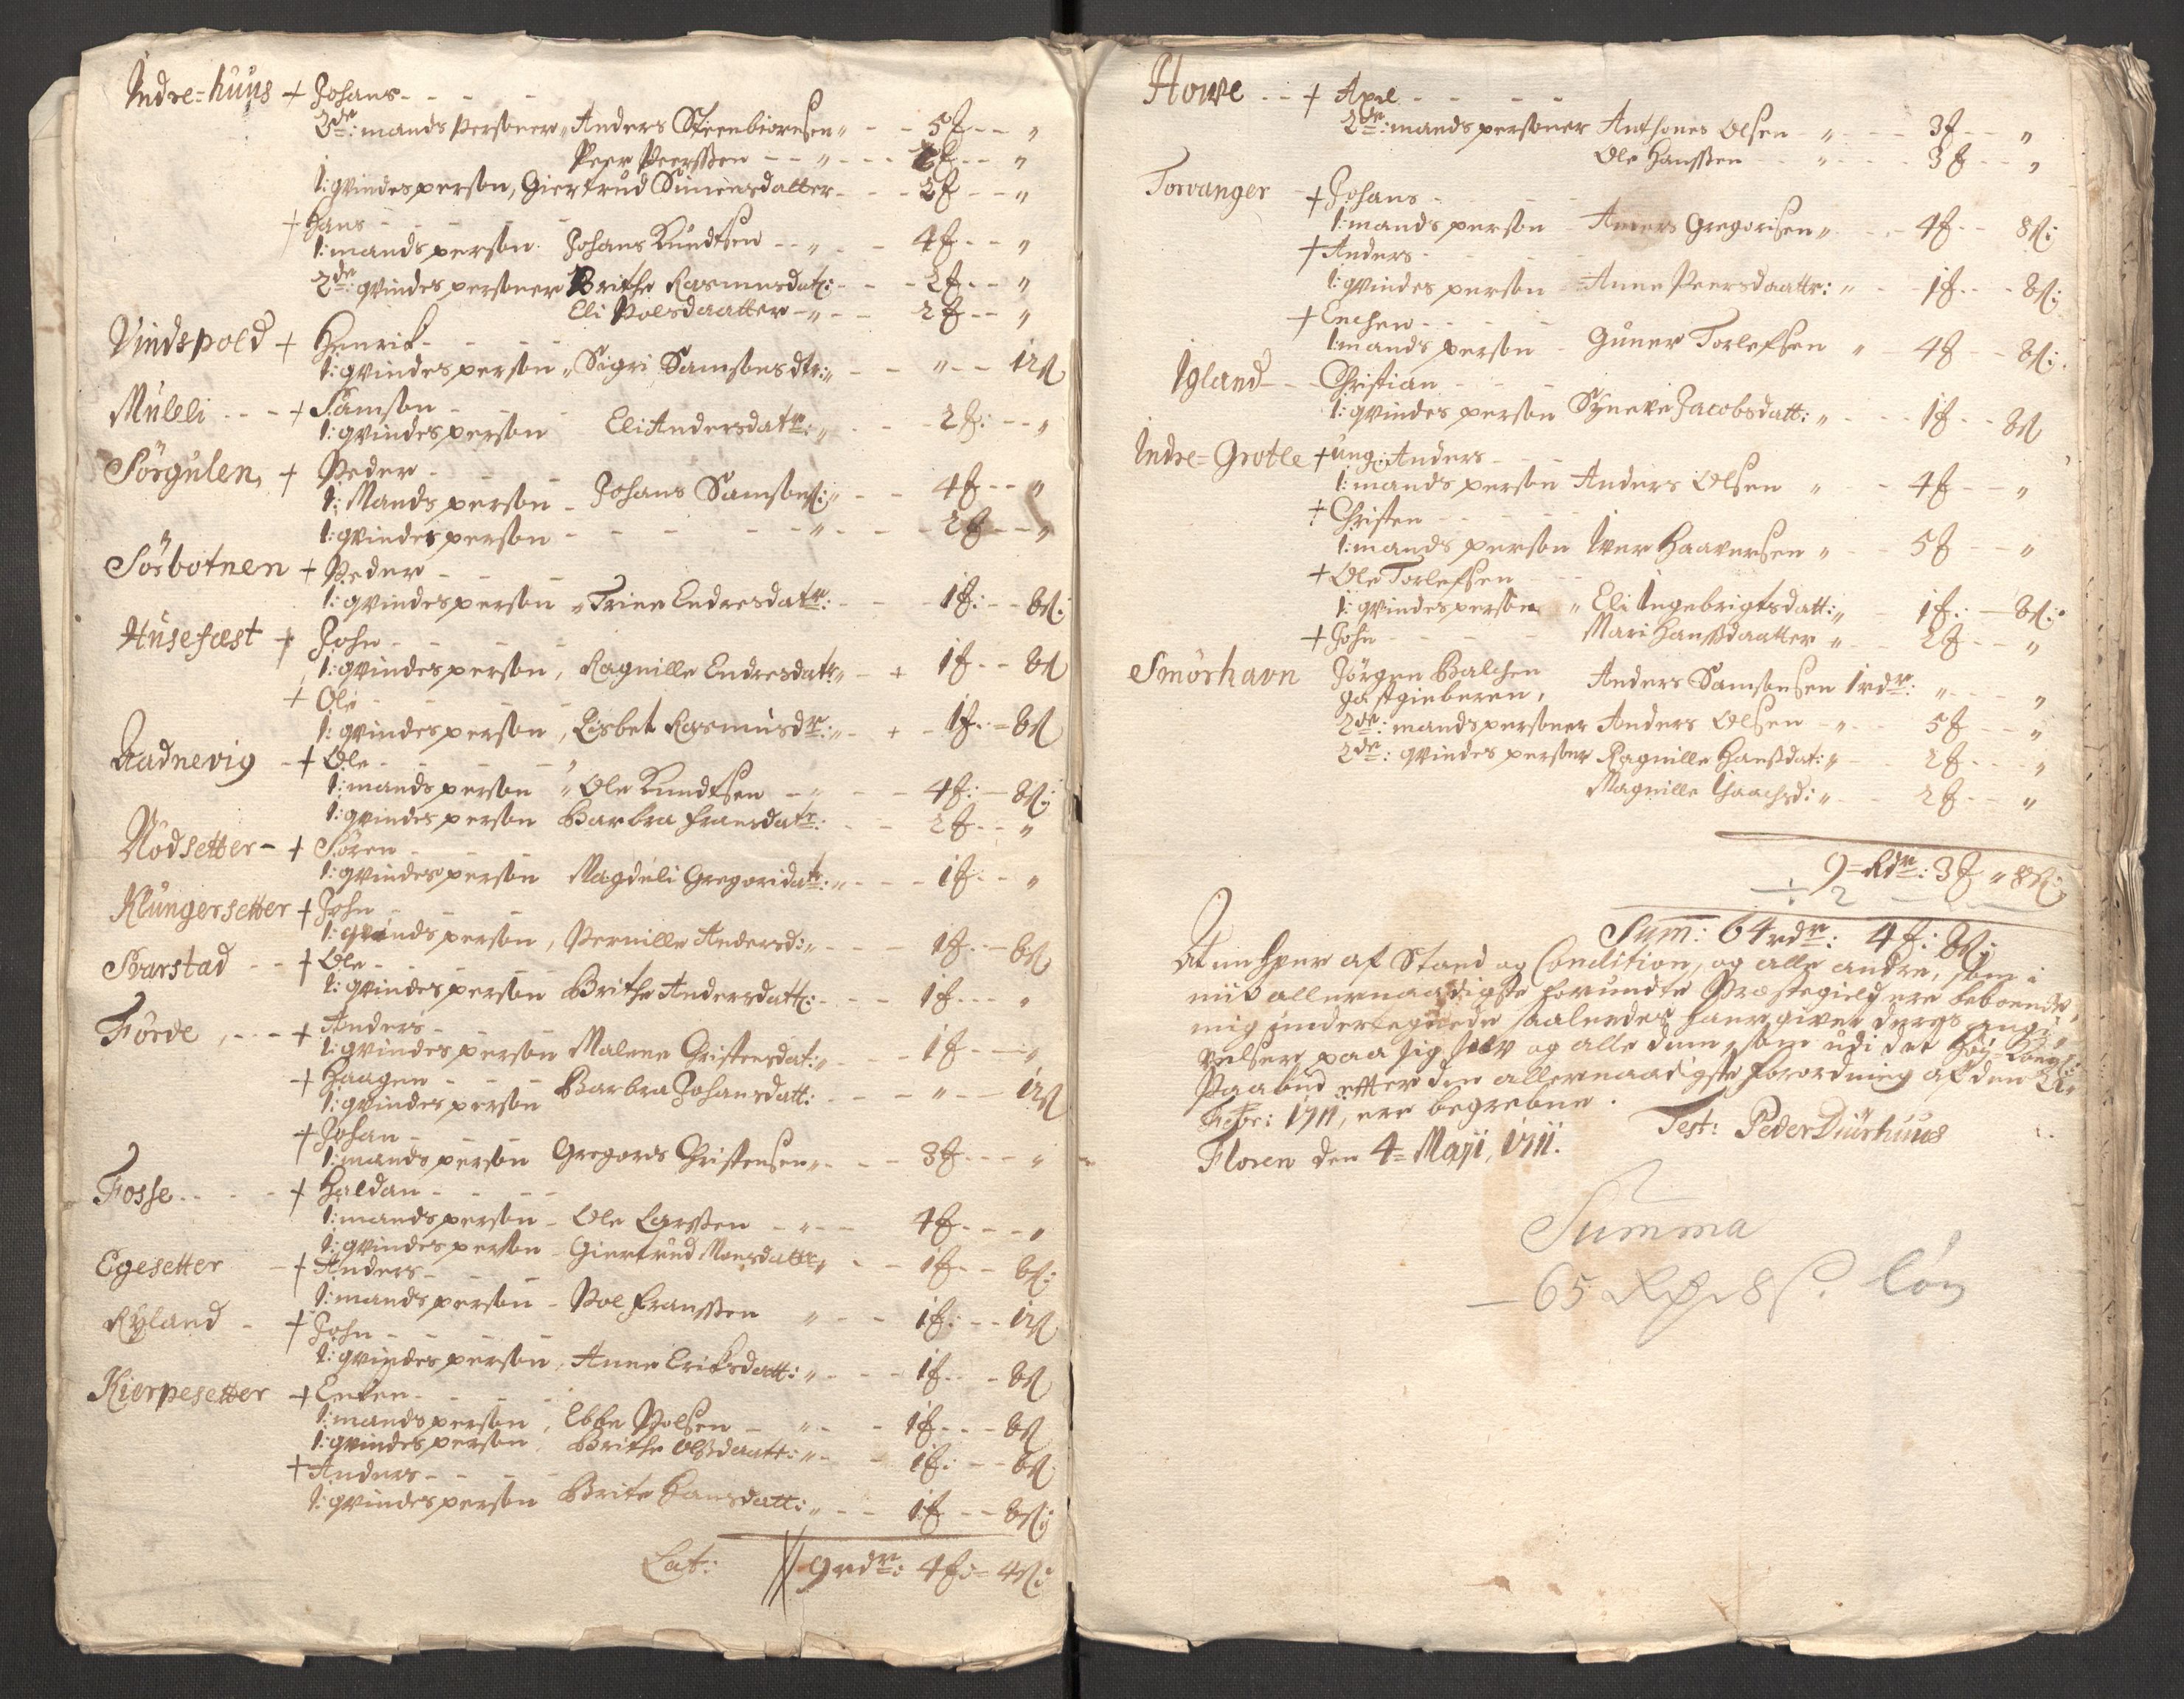 Indre=huus + Johans - - - -
2de: mands Personer „ Anders Steenbiørnsen „ - - 5 ƒ - - „
Peer Peerssen - - „ - - - 2 ƒ - - „
1: qvindes person, Giertrud Simensdatter - - - 2 ƒ - - „
+ Hans - - - - -
1: mands person Johans Knudtsen - - „ - - 4 ƒ - - „
2de: qvindes personer Brithe Rasmusdatr: - - - 2 ƒ - - „
Eli Polsdaatter - „ - - 2 ƒ - - „
Vindspold + Henrik - - - -
1: qvindes person „ Sigri Samsonsdtr: „ - - „ - - 12 ß
Muleli - - - + Samson - - - -
1: qvindes person Eli Andersdatr: „ - - - 2 ƒ: - - „
Sørgulen, + Peder - - - -
1: Mands person - Johans Samsons: „ - - 4 ƒ - - „
1: qvindes person - - - - - „ - - - 2 ƒ - - „
Sørbotnen + Peder - - - -
1: qvindes person „ Trine Endresdatr: - - - 1 ƒ: - - 8 ß:
Husefæst + John - - - -
1: qvindes person, Ragnille Endresdatr „ - + 1 ƒ - - 8 ß
+ Ole - - - -
1: qvindes person, Lisbet Rasmusdr: „ - + - 1 ƒ: - 8 ß
Aadnevig - + Ole - - - -
1: mands person „ Ole Knudtsen - „ - - 4 ƒ: - 8 ß:
1: qvindes person Barbra Fransdatr: - - 2 ƒ - - „
Nødsetter - + Søren - - - -
1: qvindes person Magdeli Gregoridatr: „ - - - 1 ƒ - - „
Klungersetter + John - - - -
1: qvinds person, Pernille Andersd: „ - - - 1 ƒ: - 8 ß
Svarstad - - + Ole - - - -
1: qvindes person Brithe Andersdatt: - - - 1 ƒ - - - „
Førde, - - - + Anders - - - -
1: qvindes person Malene Christensdat: „ - - - 1 ƒ - - - „
+ Haagen - - - -
1: qvindes person Barbra Johansdatt: - - - „ - - 12 ß
+ Johan - - - -
1: mands person Gregors Christensen „ - - - 3 ƒ - - - „
Fosse - - - - + Haldan - - - -
1: mands person - Ole Larssen - „ - - 4 ƒ - - - „
1: qvindes person - Giertrud Monsdatter „ - - 1 ƒ - - 8 ß:
Egesetter - + Anders - - - -
1: mands person - Pol Franssen „ - - 1 ƒ: - - 12 ß
Ryland - + John - - - -
1: qvindes person, Anne Eriksdatt: „ - - - 1 ƒ - - 8 ß
Kierpesetter + Enken - - - -
1: mands person, Ebbe Polsen - „ - - 1 ƒ - - - 8 ß
1: qvindes person, Brithe Olsdaatt: „ - - 1 ƒ: - - 8 ß
+ Anders - - - -
1: qvindes person Brite Hansdatt: „ - - - 1 ƒ - - 8 ß:
Lat: 9 rdr: 4 ƒ: = 4 ß:
Howe - - + Axel - - - -
2de: mands personer Anthones Olsen - „ - - - 3 ƒ - - „
Ole Hanssen - - „ - - - 3 ƒ - - „
Torvanger + Johans - - -
1: mands person - Anners Gregorisen „ - - - 4 ƒ - - 8 ß:
+ Anders - - - -
1: qvindes person - Anne Peersdaattr: „ - - 1 ƒ - - - 8 ß:
+ Enchen - - - -
1: mands person - Guner Torlefsen „ - 4 ƒ - - 8 ß:
Igland - - - Christian - - -
1: qvindes person Synneve Jacobsdatt: „ - - - 1 ƒ - - 8 ß
Indre=Grotle + ung: Anders - - -
1: mands person Anders Olsen „ - - 4 ƒ - - „
+ Christen - - - -
1: mands person Iver Haaversen „ - - 5 ƒ - - „
+ Ole Torlefsen - - -
1: qvindes person „ Eli Ingebrigtsdatt: „ - - 1 ƒ: - 8 ß:
+ John - - - - Mari Hanssdaatter „ - - 2 ƒ - - „
Smørhavn Jørgen Balchen
Gastgieberen, Anders Samsonsen 1 rdr: „ - - - „
2de: mands personer Anders Olsen - „ - - 5 ƒ - - „
2de: qvindes persner Ragnille Hansdat: „ - - 2 ƒ - - - „
Magnille Isaachsd: „ - - - 2 ƒ - - „
9 = Rdr: 3 ƒ „ 8 ß:
÷ 2
Sum: 64 rdr: 4 ƒ: 8 ß:
At en hver af Stand og Condition, og alle andre, som i
mit allernaadigste forundte Præstegield ere beboende
mig underteignede saaledes haver givet deres angi-
velser paa sig selv og alle dem, som udi det høy=Kongl:
Paabud efter den allernaadigste forordning af den
Febr: 1711, ere begrebne.
Floren den 4 = Maji, 1711. Test: Peder Diurhuus
Summa
— 65 Rdr 8 ß.